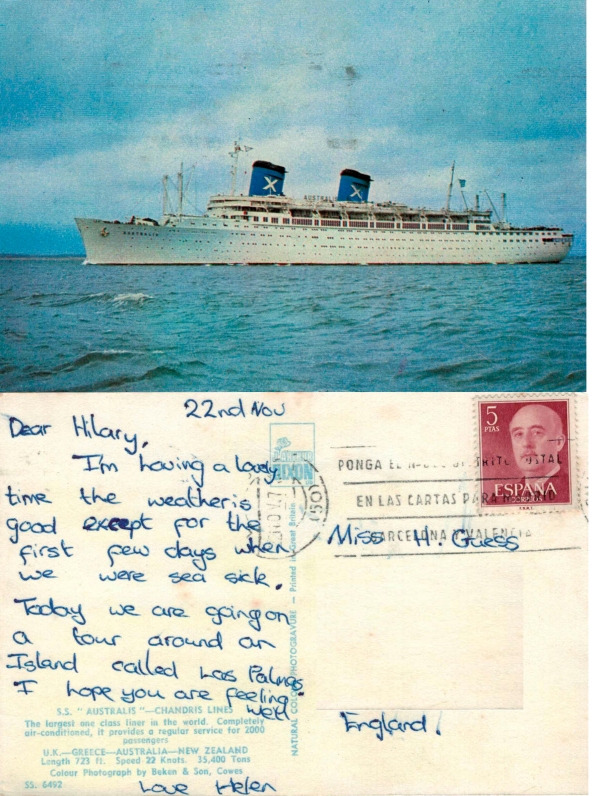 AUSTRALIS
22nd Nov
Dear Hilary,
I'm having a lovely
time the weather is
good except for the
first few days when
we were sea sick.
Today we are going on
a tour around an
Island called Las Palmas
I hope you are feeling
well
Love Helen
S.S. "AUSTRALIS"—CHANDRIS LINES
The largest one class liner in the world. Completely
air-conditioned, it provides a regular service for 2000
passengers
U.K.—GREECE—AUSTRALIA—NEW ZEALAND
Length 723 ft. Speed 22 Knots. 35,400 Tons
Colour Photograph by Beken & Son, Cowes
SS. 6492
DIXON
NATURAL COLOUR PHOTOGRAVURE — Printed in Great Britain
5
PTAS
ESPAÑA
PONGA EL DISTRITO POSTAL
EN LAS CARTAS PARA MADRID
BARCELONA Y VALENCIA
Miss H. Guess
England!